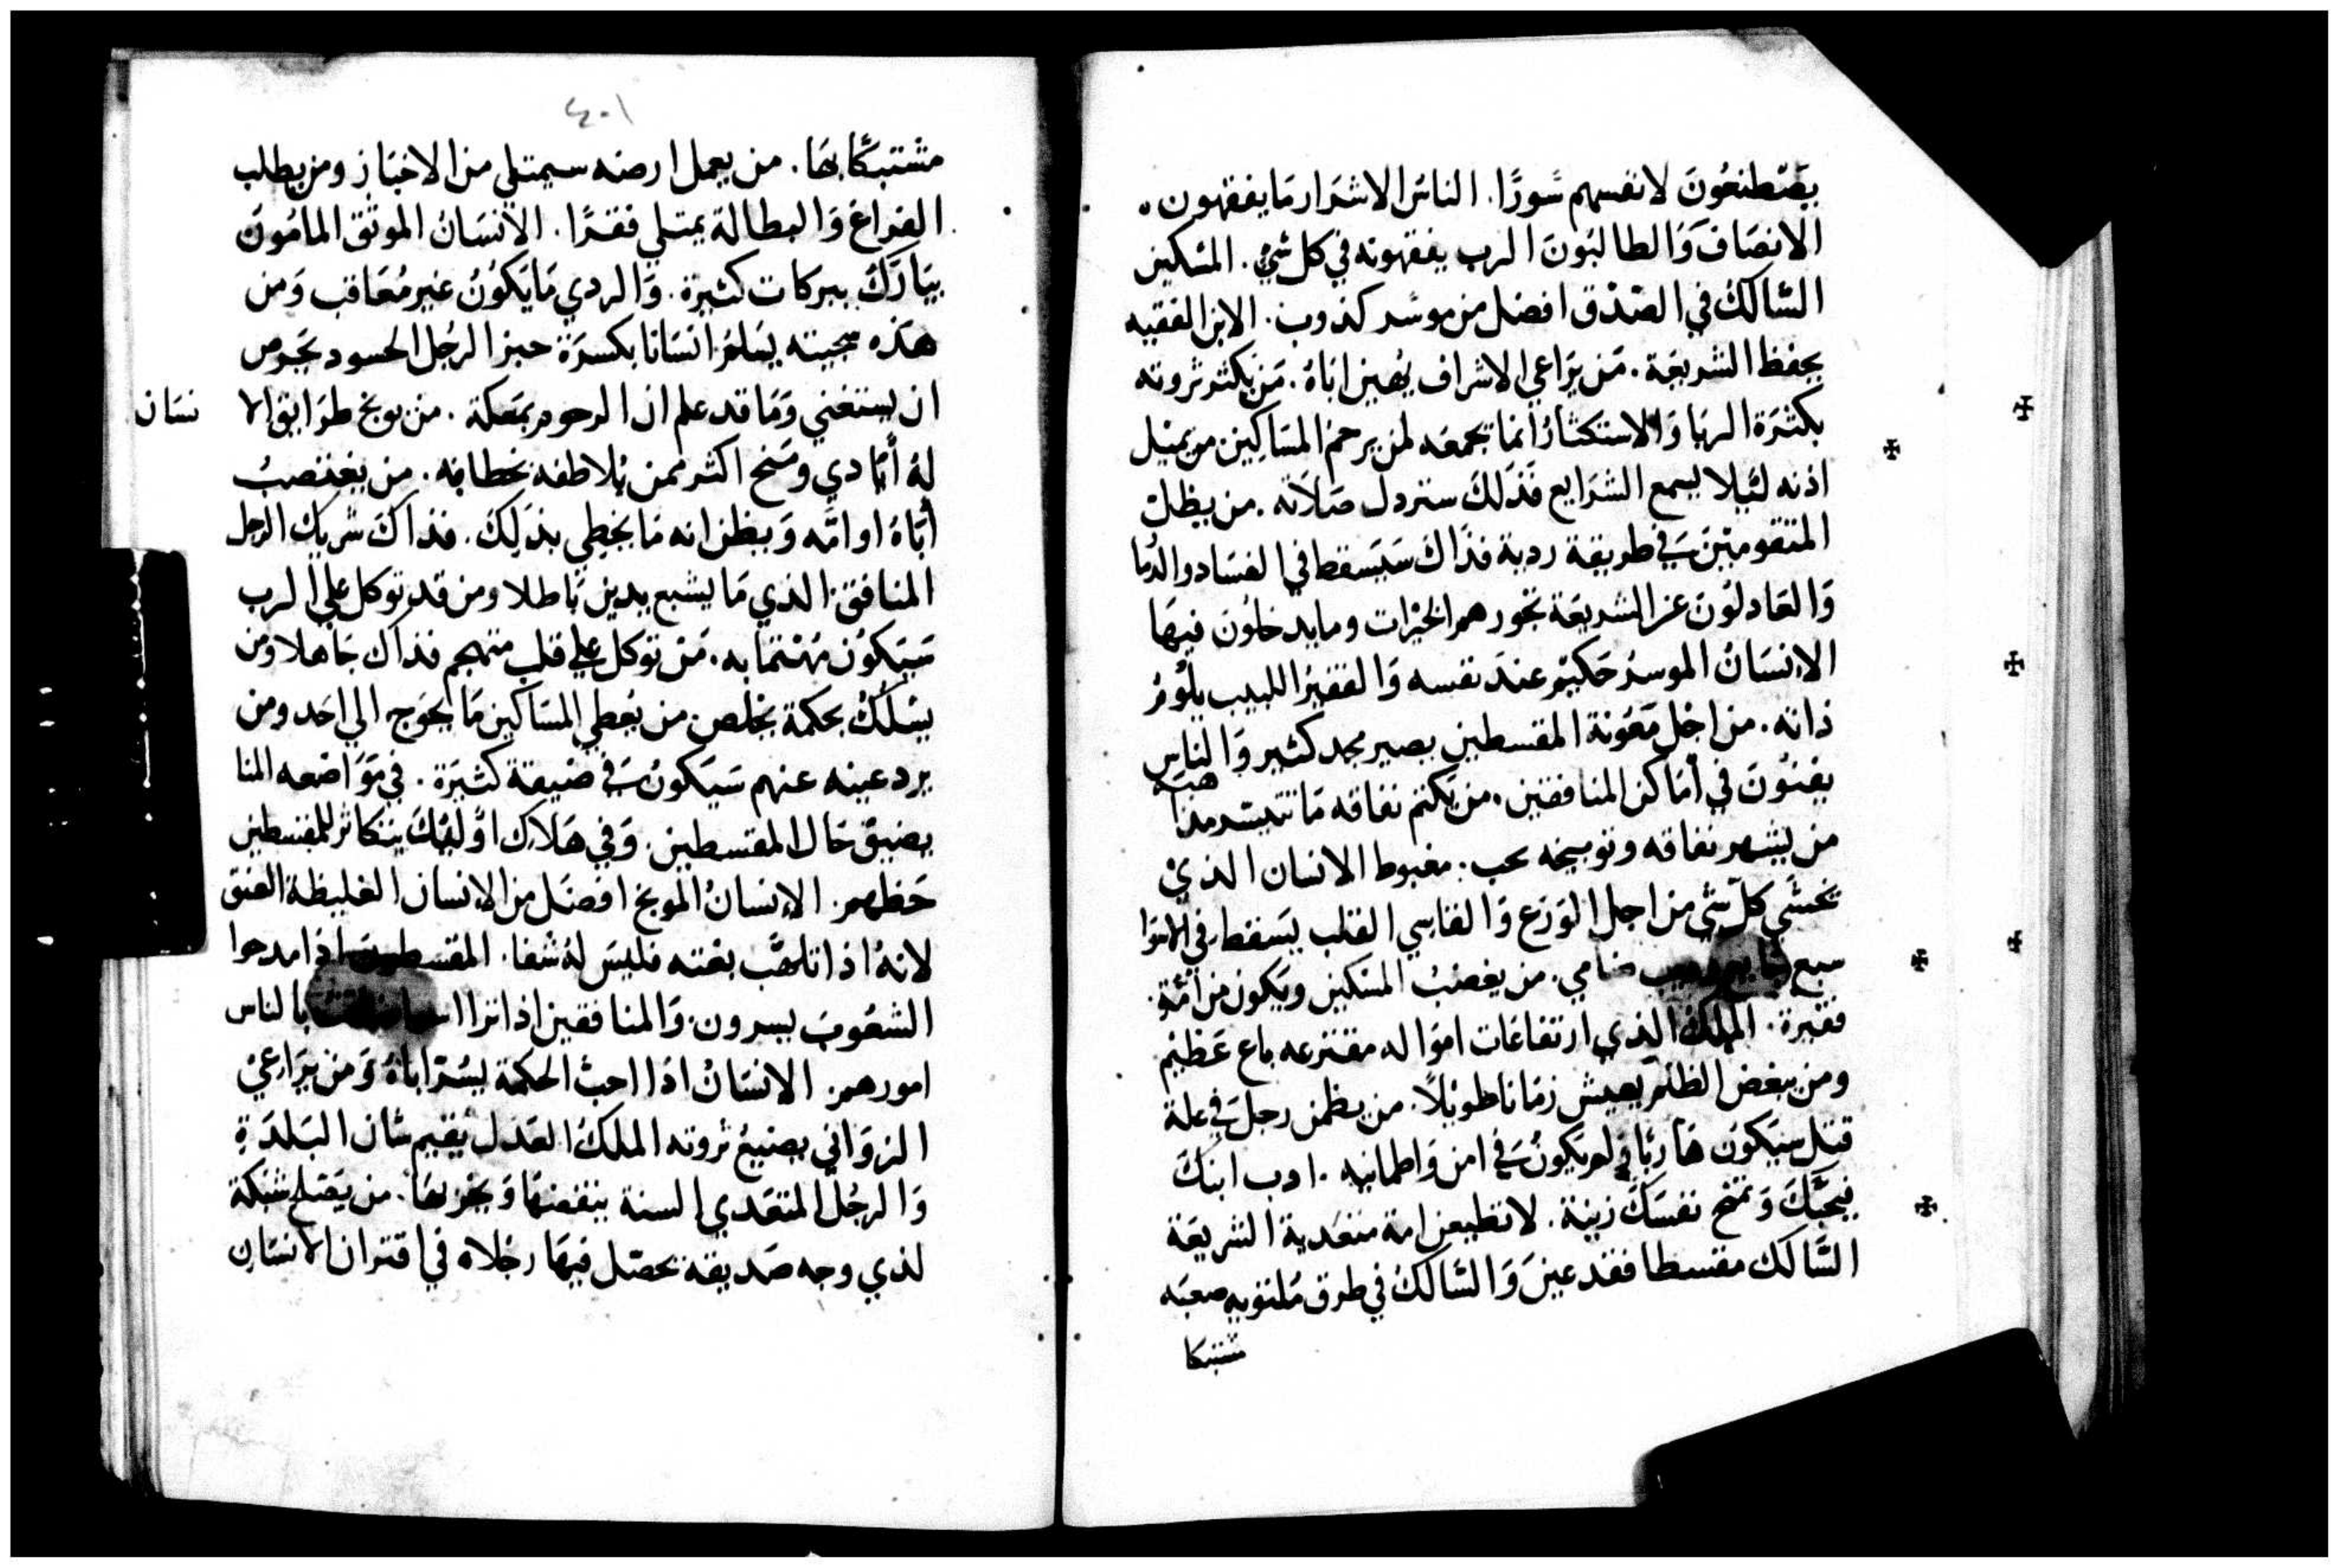 يصَطنعُونَ لانفسهم سُورًا. الناسُ الاشرَار مَا يفقهون.
الانصَاف وَالطالبُونَ الرب يفقهونه في كل شيٍ. المسَكين
السَّالكُ في الصّدق افضل من موسر كذوب. الابن الفقيه
يحفظ الشريعَة. مَن يرَاعي الاشراف يُهين ابَاهُ. مَن يكثر ثروته
بكثرَة الربَا وَالاستكثارُ انمَا يجمعه لمن يرحم المسَاكِين من يميل
اذنه لئلا يسمع الشرَايع فذلكَ ستردل صَلاته. من يظلل
المتقومِيَن في طريقة ردية فذَاكَ سَيَسقط في الفسَاد والدُما
وَالعَادلُونَ عن الشريعَة تجوزهم الخيرات وما يدخلُون فيهَا
الانسَانُ الموسرُ حَكيم عندَ نفسه وَالفقيرُ اللبيب يلُومُ
ذاته. من اجْل مَعُونة المقسطين يصير مجد كثير وَالناس
يفنُونَ في أمَاكن المنافقين. من يكتم نفاقه مَا تتيسر مذاهبه
من يشهر نفاقه وتوبيخه يحب. مغبوط الانسان الذيْ
يخشي كلّ شي من اجل الوَرَع وَالقاسِي القلب يسَقط في الاسوَا
سبع ضامي. من يغصبُ المسَكين ويَكون من امّة
فقيرة. الملكُ الذي ارتفاعَات اموَاله مفتزعه باع عَظيم
ومن يبغض الظلم يعيش زمَانا طويلاً. من يضمن رجل في علة
قتل سيَكون هَاربًا ولم يَكونُ في امن وَاطمانيه. ادب ابنكَ
فيحبَّكَ وَتمنح نفسَكَ زينة. لا تطيعن امة متعَدية الشريعَة
السَّالك مقسطا فقد عينَ وَالسَّالكُ في طرق مُلتويه صعبَه
مشتبكا
٤٠١
مشتبكًا بهَا. من يعمل ارضه سيمتلي من الاخبَاز ومن يطلب
الفراغ وَالبطالة يمتلي فقرًا. الانسَانُ الموثق المامُون
يبَارَكَ ببركات كثيرة. وَالردي مَا يَكوُنُ غير مُعَاقب وَمن
هَذه سجيته يَسلمُ انسَانا بكسرَة خبز الرجُل الحسود يحَرص
ان يستغني وَمَا قد علم ان الرحوم يمَكه. من يوبخ طرَايق الا نسَان
لهُ أيَادي وَمنح اكثر ممن يُلاطفه بخطابه. من يغتصبُ
أبَاهُ او امّه وَيظن انه مَا يخطي بذلِكَ. فذاكَ شريك الرجل
المنافق الذي مَا يشبع يدين بَاطلا ومن قد توكل علي الرب
سَيَكوُن مُهْتمَا به. مَن توكل علي قلب متهجم فذاك جَاهلا ومن
يسْلُكُ بحكمة يخلص من يُعطي المسَاكين مَا يحَوج الي احَد ومن
يرد عينه عنهم سَيَكونُ في ضيقة كثيَرة. في موَاضعه المنا
يضيق حَال المقسطين. وَفي هَلاك اوُليكَ يتكاثر للمقسطين
حَظهم. الانسانُ الموبخ افضَل من الانسان الغليظة العنق
لانهُ اذا تلهَّب بغته فليسَ لهُ شفا. المقسطين اذا مدحوا
الشعُوبَ يسرون. وَالمنافقين اذا تراا بالناس
امورهم. الانسَانُ اذا احبّ الحكمة يُسَرّ ابَاهُ وَمن يرَاعيْ
الزوَاني يضيعُ ثروته الملكُ العَدل يُقيم شان البَلدَةِ
وَالرجُل المتعَدي السنة ينقضهَا وَيخربهَا. من يَصَلح شبكة
لذي وجه صَديقه يحصّل فيهَا رجْلاه في اقتران الانسَان